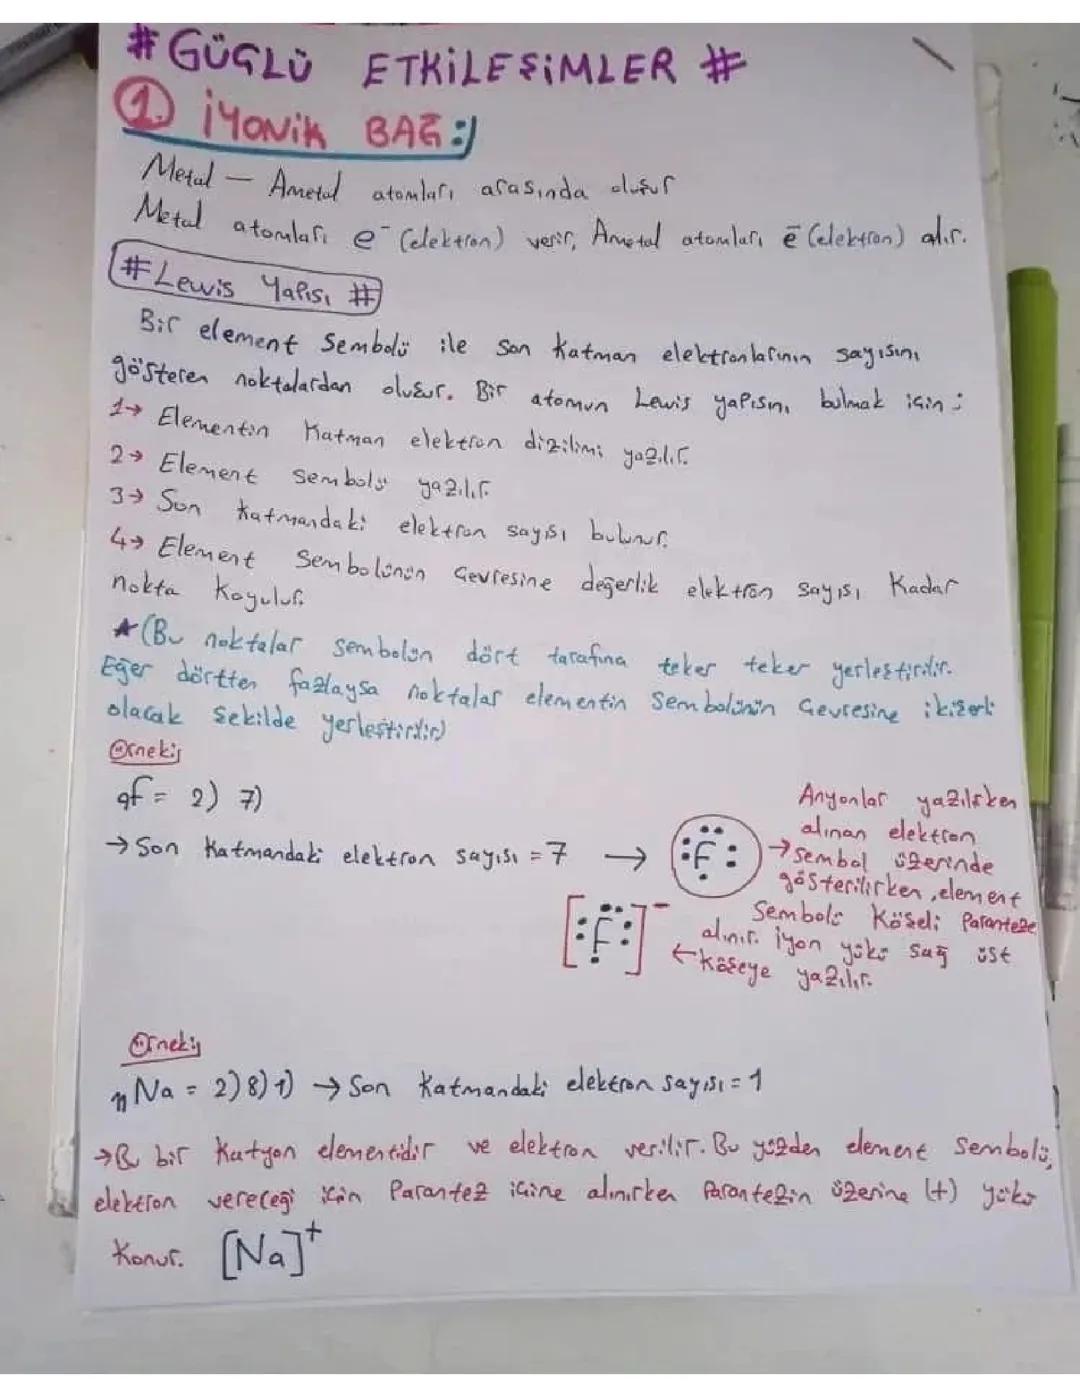 #GÜÇLÜ ETKİLEŞİMLER #
1. İYONİK BAĞ:)
Metal – Ametal atomları arasında oluşur
Metal atomları e⁻ (elektron) verir, Ametal atomları e⁻ (elektron) alır.
#Lewis Yapısı #
Bir element Sembolü ile son katman elektronlarının sayısını
gösteren noktalardan oluşur. Bir atomun Lewis yapısını bulmak için :
1→ Elementin katman elektron dizilimi yazılır.
2→ Element sembolü yazılır.
3→ Son katmandaki elektron sayısı bulunur.
4→ Element Sembolünün çevresine değerlik elektron sayısı kadar
nokta koyulur.
★(Bu noktalar sembolün dört tarafına teker teker yerleştirilir.
Eğer dörtten fazlaysa noktalar elementin Sembolünün çevresine ikişerli
olacak şekilde yerleştirilir)
Örnek;
₉F = 2) 7)
→ Son katmandaki elektron sayısı = 7 → F
Anyonlar yazılırken
alınan elektron
→ sembol üzerinde
gösterilirken, element
Sembolü Köşeli Paranteze
alınır. iyon yükü sağ üst
← köşeye yazılır.
[F]⁻
Örnek;
₁₁Na = 2) 8) 1) → Son katmandaki elektron sayısı = 1
→ Bu bir katyon elementidir ve elektron verilir. Bu yüzden element sembolü,
elektron vereceği için Parantez içine alınırken Parantezin üzerine (+) yükü
konur. [Na]⁺